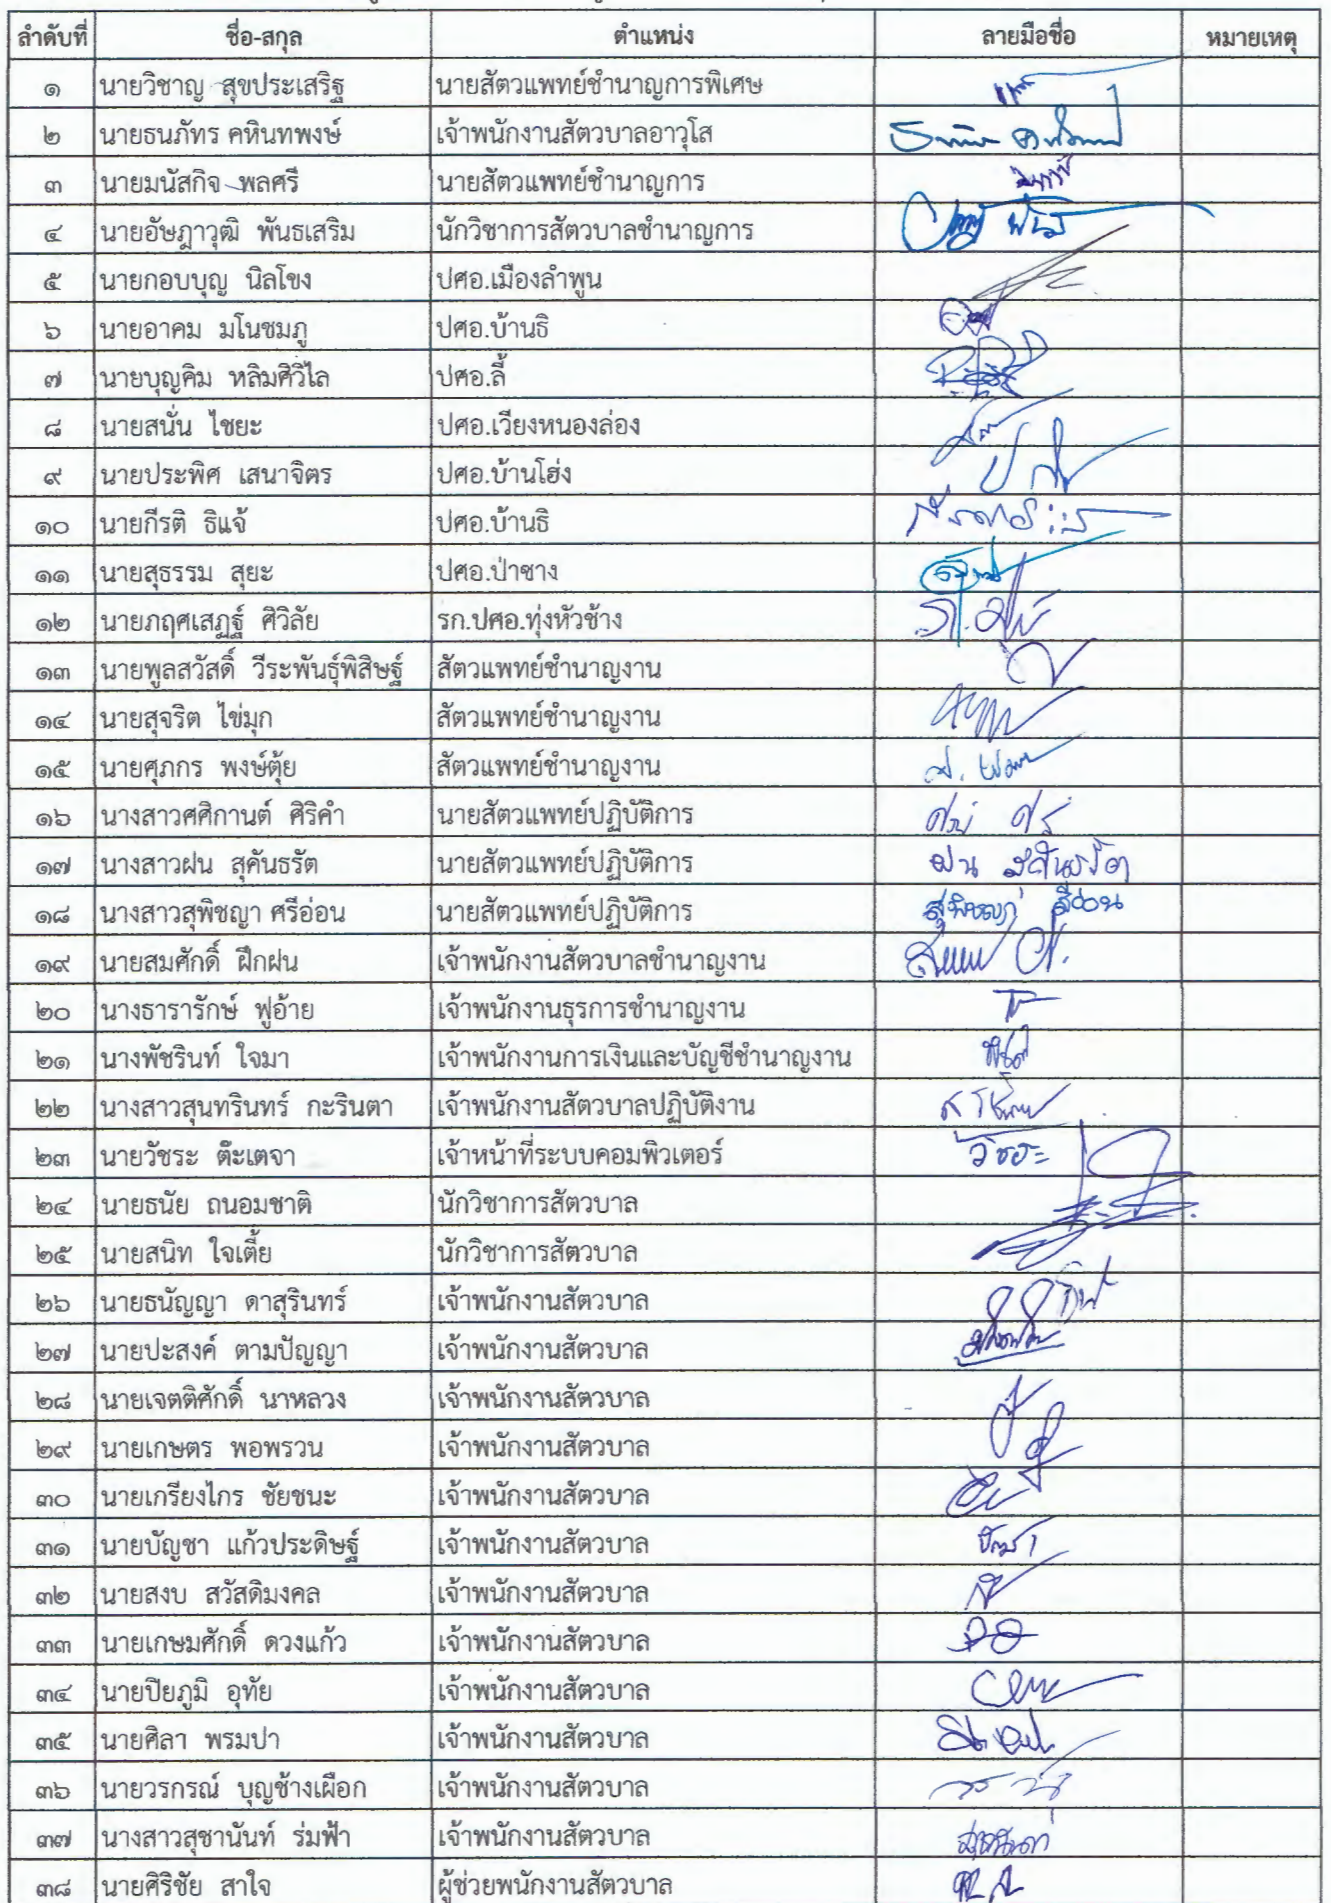 ลำดับที่ ชื่อ-สกุล ตำแหน่ง ลายมือชื่อ หมายเหตุ
๑ นายวิชาญ สุขประเสริฐ นายสัตวแพทย์ชำนาญการพิเศษ
๒ นายธนภัทร คหินทพงษ์ เจ้าพนักงานสัตวบาลอาวุโส
๓ นายมนัสกิจ พลศรี นายสัตวแพทย์ชำนาญการ
๔ นายอัษฎาวุฒิ พันธเสริม นักวิชาการสัตวบาลชำนาญการ
๕ นายกอบบุญ นิลโขง ปศอ.เมืองลำพูน
๖ นายอาคม มโนชมภู ปศอ.บ้านธิ
๗ นายบุญคิม หลิมศิวิไล ปศอ.ลี้
๘ นายสนั่น ไชยะ ปศอ.เวียงหนองล่อง
๙ นายประพิศ เสนาจิตร ปศอ.บ้านโฮ่ง
๑๐ นายกีรติ ธิแจ้ ปศอ.บ้านธิ
๑๑ นายสุธรรม สุยะ ปศอ.ป่าซาง
๑๒ นายภฤศเสฏฐ์ ศิวิลัย รก.ปศอ.ทุ่งหัวช้าง
๑๓ นายพูลสวัสดิ์ วีระพันธุ์พิสิษฐ์ สัตวแพทย์ชำนาญงาน
๑๔ นายสุจริต ไข่มุก สัตวแพทย์ชำนาญงาน
๑๕ นายศุภกร พงษ์ตุ้ย สัตวแพทย์ชำนาญงาน
๑๖ นางสาวศศิกานต์ ศิริคำ นายสัตวแพทย์ปฏิบัติการ
๑๗ นางสาวฝน สุคันธรัต นายสัตวแพทย์ปฏิบัติการ ฝน สุคันธรัต
๑๘ นางสาวสุพิชญา ศรีอ่อน นายสัตวแพทย์ปฏิบัติการ สุพิชญา ศรีอ่อน
๑๙ นายสมศักดิ์ ฝึกฝน เจ้าพนักงานสัตวบาลชำนาญงาน
๒๐ นางธารารักษ์ ฟูอ้าย เจ้าพนักงานธุรการชำนาญงาน
๒๑ นางพัชรินท์ ใจมา เจ้าพนักงานการเงินและบัญชีชำนาญงาน
๒๒ นางสาวสุนทรินทร์ กะรินตา เจ้าพนักงานสัตวบาลปฏิบัติงาน
๒๓ นายวัชระ ต๊ะเตจา เจ้าหน้าที่ระบบคอมพิวเตอร์ วัชระ
๒๔ นายธนัย ถนอมชาติ นักวิชาการสัตวบาล
๒๕ นายสนิท ใจเตี้ย นักวิชาการสัตวบาล
๒๖ นายธนัญญา ดาสุรินทร์ เจ้าพนักงานสัตวบาล
๒๗ นายปะสงค์ ตามปัญญา เจ้าพนักงานสัตวบาล
๒๘ นายเจตติศักดิ์ นาหลวง เจ้าพนักงานสัตวบาล
๒๙ นายเกษตร พอพรวน เจ้าพนักงานสัตวบาล
๓๐ นายเกรียงไกร ชัยชนะ เจ้าพนักงานสัตวบาล
๓๑ นายบัญชา แก้วประดิษฐ์ เจ้าพนักงานสัตวบาล บัญชา
๓๒ นายสงบ สวัสดิมงคล เจ้าพนักงานสัตวบาล
๓๓ นายเกษมศักดิ์ ดวงแก้ว เจ้าพนักงานสัตวบาล
๓๔ นายปิยภูมิ อุทัย เจ้าพนักงานสัตวบาล
๓๕ นายศิลา พรมปา เจ้าพนักงานสัตวบาล
๓๖ นายวรกรณ์ บุญช้างเผือก เจ้าพนักงานสัตวบาล
๓๗ นางสาวสุชานันท์ ร่มฟ้า เจ้าพนักงานสัตวบาล
๓๘ นายศิริชัย สาใจ ผู้ช่วยพนักงานสัตวบาล